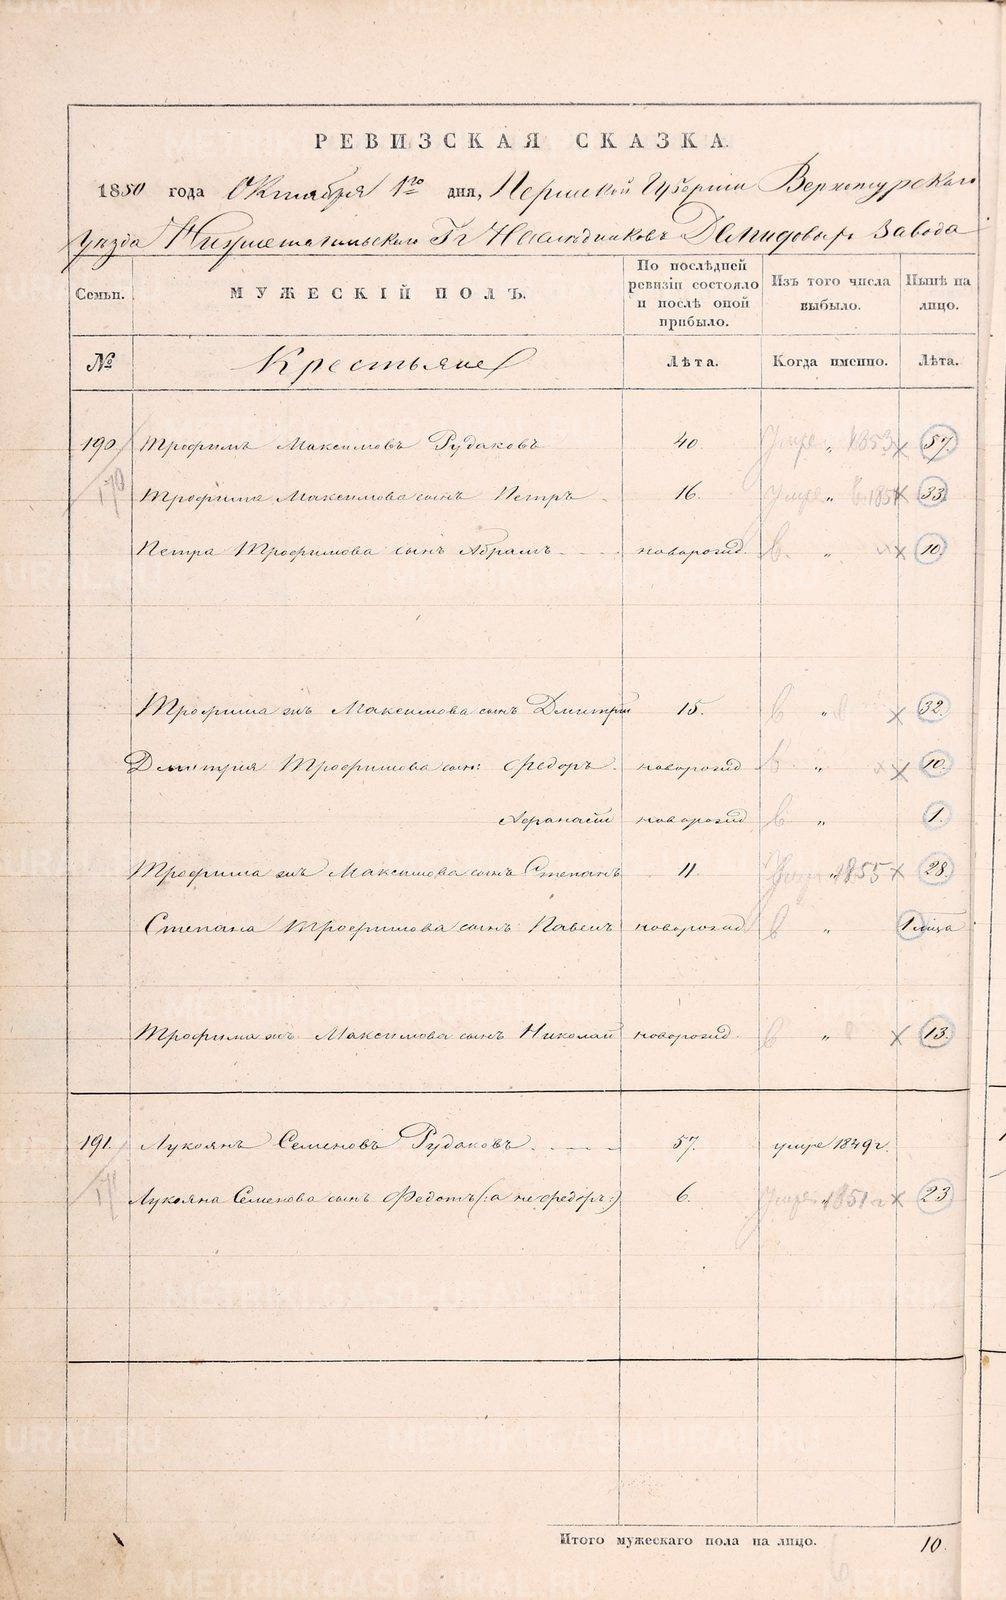 РЕВИЗСКАЯ СКАЗКА.
1850 года Октября 1го дня, Пермской Губернии Верхотурскаго
уезда Нижнетагильскаго Гг Наследниковъ Демидовыхъ Завода
Семьи. МУЖЕСКІЙ ПОЛЪ. По послѣдней ревизіи состояло и послѣ оной прибыло. Изъ того числа выбыло. Нынѣ на лицо.
№ Крестьяне Лѣта. Когда именно. Лѣта.
190. Трофимъ Максимовъ Рудаковъ 40. умре " 1853 57.
170
Трофима Максимова сынъ Петръ 16. умре " 33.
Петра Трофимова сынъ Абрамъ новорожд. в " 10.
Трофима жъ Максимова сынъ Дмитрій 15. в " 32.
Дмитрія Трофимова сын: Федоръ новорожд в " 10.
Афанасій новорожд в " 1.
Трофима жъ Максимова сынъ Степанъ 11. умре " 1855 28.
Степана Трофимова сынъ Павелъ новорожд в " 1 м:ца
Трофима жъ Максимова сынъ Николай новорожд. в " 13.
191. Лукоянъ Семеновъ Рудаковъ 57. умре 1849 г.
171
Лукояна Семенова сынъ Федотъ (:а не Федоръ:) 6. умре " 1851 г 23
Итого мужескаго пола на лицо. 10.
METRIKI.GASO-URAL.RU